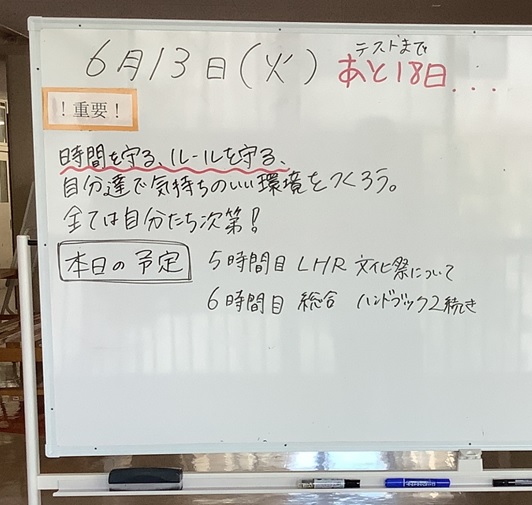 6月13日(火)
テストまで
あと18日...
!重要!
時間を守る、ルールを守る、
自分達で気持ちのいい環境をつくろう。
全ては自分たち次第!
本日の予定
5時間目 LHR 文化祭について
6時間目 総合 ハンドブック2続き